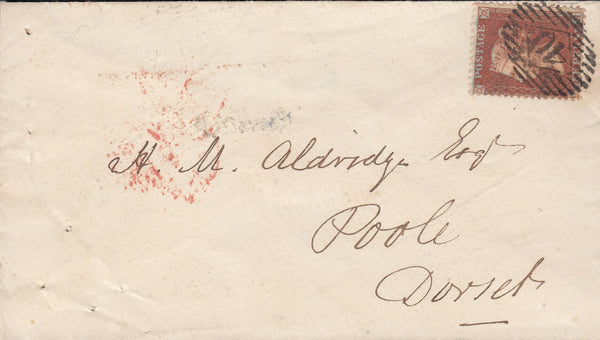 POSTAGE
H. M. Aldridge Esqr
Poole
Dorset